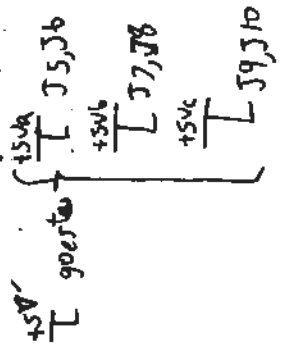 +5V'
goes to
+5Va
J5,J6
+5Vb
J7,J8
+5Vc
J9,J10